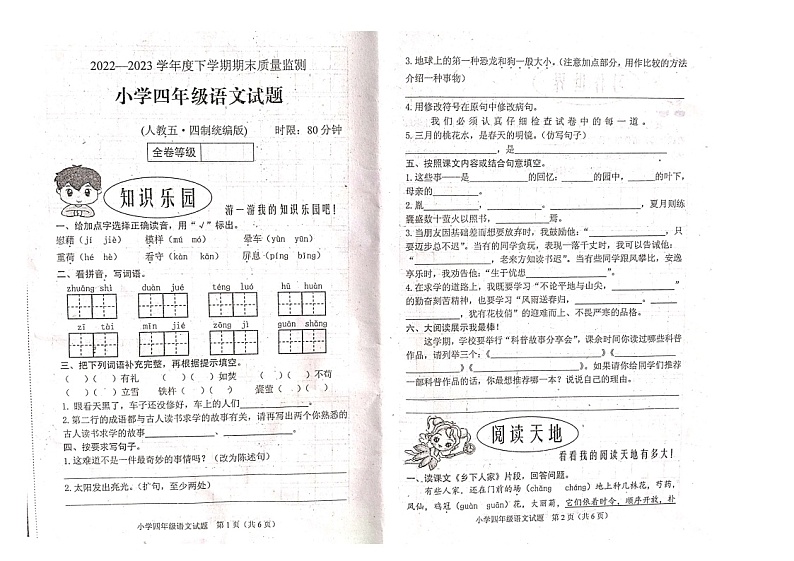 2022—2023 学年度下学期期末质量监测
小学四年级语文试题
(人教五·四制统编版) 时限：80 分钟
全卷等级
知识乐园
游一游我的知识乐园吧！
一、给加点字选择正确读音，用“√”标出。
慰藉（jí jiè） 模样（mú mó） 晕车（yùn yūn）
重荷（hé hè） 看守（kàn kān） 屏息（píng bǐng）
二、看拼音，写词语。
zhuāng shì duàn jué téng luó hū huàn
zī tài mǐn jié zōng jì guān shǎng
三、把下列词语补充完整，再根据提示填空。
（ ）（ ）有礼 （ ）（ ）如焚 （ ）（ ）不苟
（ ）（ ）立雪 铁杵（ ）（ ） 囊萤（ ）（ ）
1. 眼看天黑了，车子还没修好，车上的人们____________。
2. 第二行的成语都与古人读书求学的故事有关，请再写出两个你熟悉的
古人读书求学的故事____________、____________。
四、按要求写句子。
1. 这难道不是一件最奇妙的事情吗？（改为陈述句）
2. 太阳发出亮光。（扩句，至少两处）
小学四年级语文试题 第 1 页（共 6 页）
3. 地球上的第一种恐龙和狗一般大小。（注意加点部分，用作比较的方法
介绍一种事物）
4. 用修改符号在原句中修改病句。
我们必须认真仔细检查试卷中的每一道。
5. 三月的桃花水，是春天的明镜。（仿写句子）
____________，是____________。
五、按照课文内容或结合句意填空。
1. 这些事——是__________的回忆：______的园中，______的叶下，
母亲的________。
2. 胤________，________。________，夏月则练
囊盛数十萤火以照书，________焉。
3. 当朋友因基础差而想要放弃时，我鼓励他：“____________，只
要迈步总不迟”。当有的同学贪玩，表现一落千丈时，我可以告诫他：
“____________，老来方知读书迟”。当有些同学跟风攀比，安逸
享乐时，我劝告他：“生于忧患____________”。
4. 在求学的道路上，我既要学习“不论平地与山尖，____________”
的勤奋刻苦精神，也要学习“风雨送春归，____________。______
________，犹有花枝俏”的迎难而上、不畏严寒的品格。
六、大阅读展示我最棒！
这学期，学校要举行“科普故事分享会”，课余时间你读过哪些科普
作品，请列举三个：《____________》《____________
______》《____________》。如果请你给同学们推荐
一部科普作品的话，你最想推荐哪一本？说说自己的理由。
阅读天地
看看我的阅读天地有多大！
一、读课文《乡下人家》片段，回答问题。
有些人家，还在门前的场（cháng chǎng）地上种几株花，芍药，
凤仙，鸡冠（guàn guān）花，大丽菊，它们依着时令，顺序开放，朴
小学四年级语文试题 第 2 页（共 6 页）